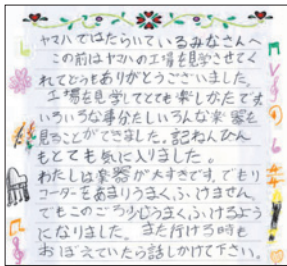 ヤマハではたらいているみなさんへ
この前はヤマハの工場を見学させてく
れてどうもありがとうございました。
工場を見学してとても楽しかたです。
いろいろな事分たしいろんな楽器を
見ることができました。記ねんひん
もとても気に入りました。
わたしは楽器が大すきです。でもり
コーダーをあまりうまくふけません。
でもこのごろ少しうまくふけるよう
になりました。また行ける時も
おぼえていたら話しかけて下さい。